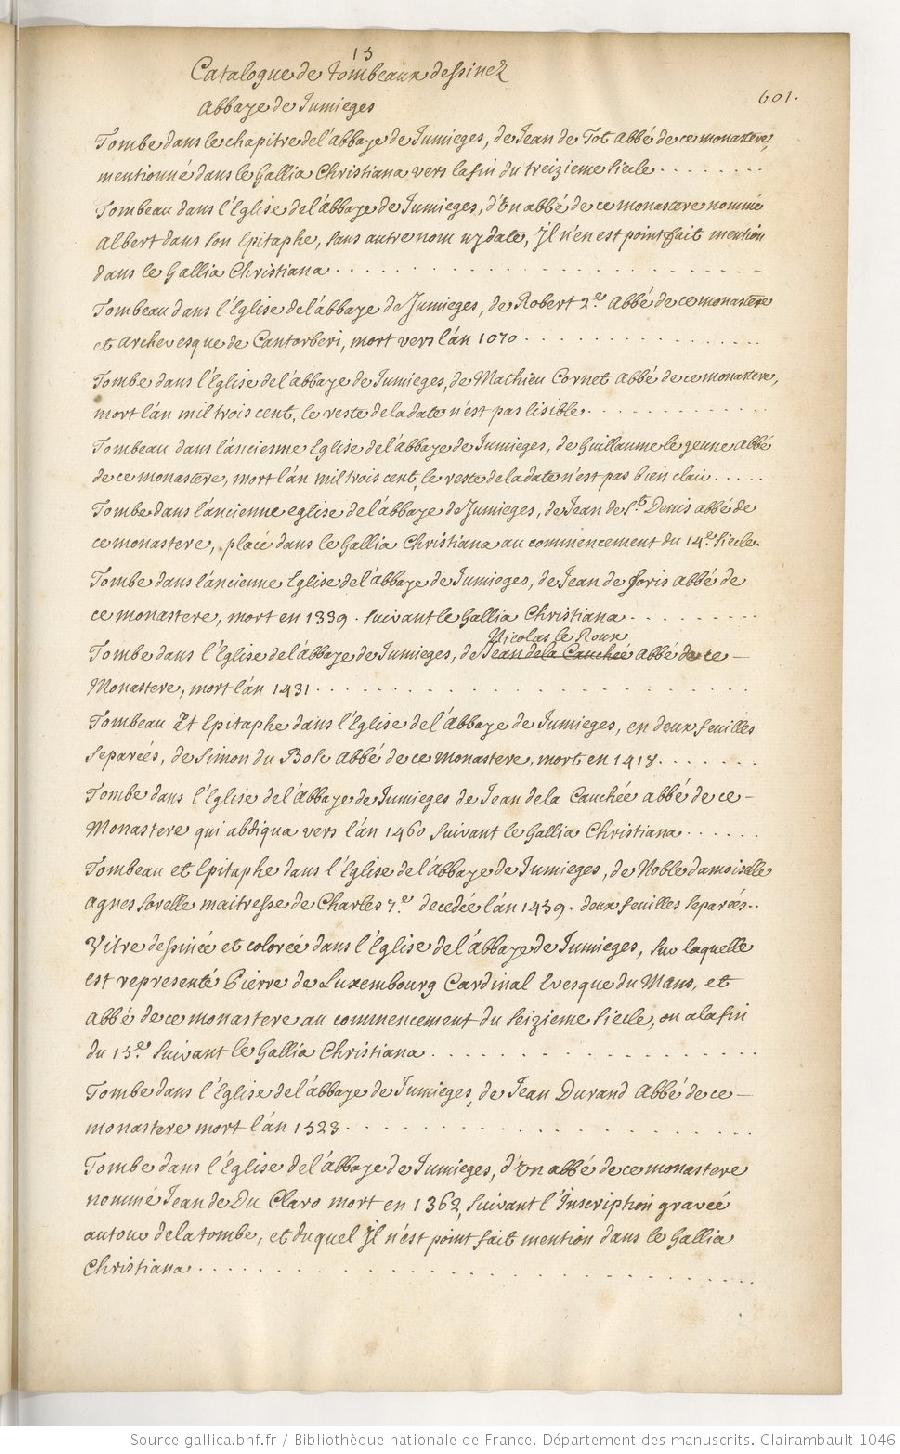 13
Catalogue de tombeaux dessinez
601.
Abbaye de Jumieges
Tombe dans le chapitre de l'abbaye de Jumieges, de Jean de Tot abbé de ce monastere,
mentionné dans le Gallia Christiana vers la fin du treizieme siecle . . . . . . . .
Tombeau dans l'Eglise de l'abbaye de Jumieges, d'Un abbé de ce monastere nommé
Albert dans son Epitaphe, sans autre nom ny date, Il n'en est point fait mention
dans le Gallia Christiana . . . . . . . . . . . . . . . . . . .
Tombeau dans l'Eglise de l'abbaye de Jumieges, de Robert 2.e Abbé de ce monastere
et archevesque de Cantorberi, mort vers l'an 1070 . . . . . . . . . . . . . . .
Tombe dans l'Eglise de l'abbaye de Jumieges, de Mathieu Cornet abbé de ce monastere,
mort l'an mil trois cent, le reste de la date n'est pas lisible . . . . . . . . . . .
Tombeau dans l'ancienne Eglise de l'abbaye de Jumieges, de Guillaume le jeune abbé
de ce monastere, mort l'an mil trois cent, le reste de la date n'est pas bien clair . . . . .
Tombe dans l'ancienne eglise de l'abbaye de Jumieges, de Jean de St. Denis abbé de
ce monastere, placé dans le Gallia Christiana au commencement du 14.e siecle.
Tombe dans l'ancienne Eglise de l'abbaye de Jumieges, de Jean de foris abbé de
ce monastere, mort en 1339 . suivant le Gallia Christiana . . . . . . . . .
Nicolas le Roux
Tombe dans l'Eglise de l'abbaye de Jumieges, de Jean de la Cauchée abbé de ce
Monastere, mort l'an 1431 . . . . . . . . . . . . . . . . . . . .
Tombeau Et Epitaphe dans l'Eglise de l'Abbaye de Jumieges, en deux feuilles
separées, de Simon du Bosc abbé de ce monastere, mort en 1418 . . . . . . .
Tombe dans l'Eglise de l'abbaye de Jumieges de Jean de la Cauchée abbé de ce
Monastere qui abdiqua vers l'an 1460 suivant le Gallia Christiana . . . . . .
Tombeau et Epitaphe dans l'Eglise de l'abbaye de Jumieges, de Noble damoiselle
Agnes Sorelle maitresse de Charles 7.e decedée l'an 1439 . deux feuilles separées . .
Vitre dessinée et colorée dans l'Eglise de l'abbaye de Jumieges, sur laquelle
est representé Pierre de Luxembourg Cardinal Evesque du Mans, et
abbé de ce monastere au commencement du seizieme siecle, ou a la fin
du 15.e suivant le Gallia Christiana . . . . . . . . . . . . . .
Tombe dans l'Eglise de l'abbaye de Jumieges, de Jean Durand Abbé de ce
monastere mort l'an 1323 . . . . . . . . . . . . . . . . .
Tombe dans l'Eglise de l'abbaye de Jumieges, d'Un abbé de ce monastere
nommé Jean de Du Claro mort en 1362, suivant l'Inscription gravée
autour de la tombe, et duquel Il n'est point fait mention dans le Gallia
Christiana . . . . . . . . . . . . . . . . . . . . . . .
Source gallica.bnf.fr / Bibliothèque nationale de France. Département des manuscrits. Clairambault 1046